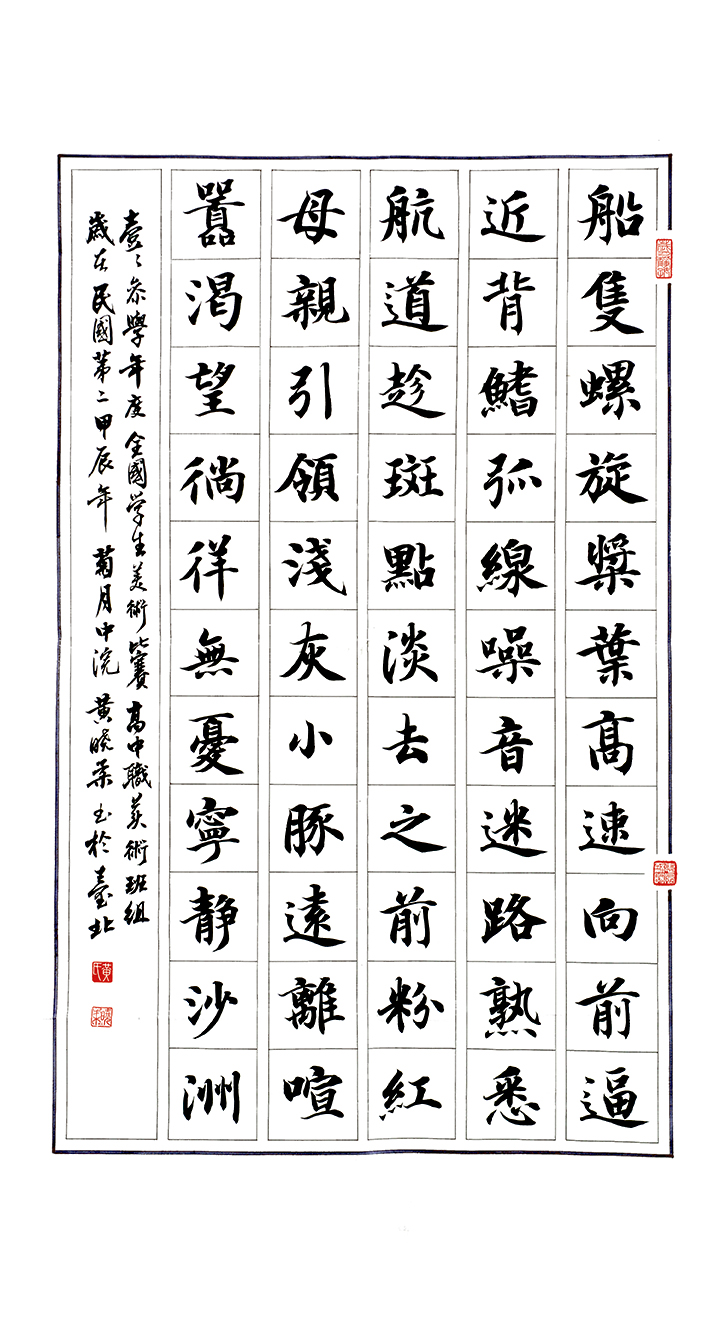 船隻螺旋槳葉高速向前逼
近背鰭弧線噪音迷路熟悉
航道趁斑點淡去之前粉紅
母親引領淺灰小豚遠離喧
囂渴望徜徉無憂寧靜沙洲
壹壹參學年度全國學生美術比賽高中職美術班組
歲在民國第二甲辰年菊月中浣黃曉柔書於臺北
黃氏